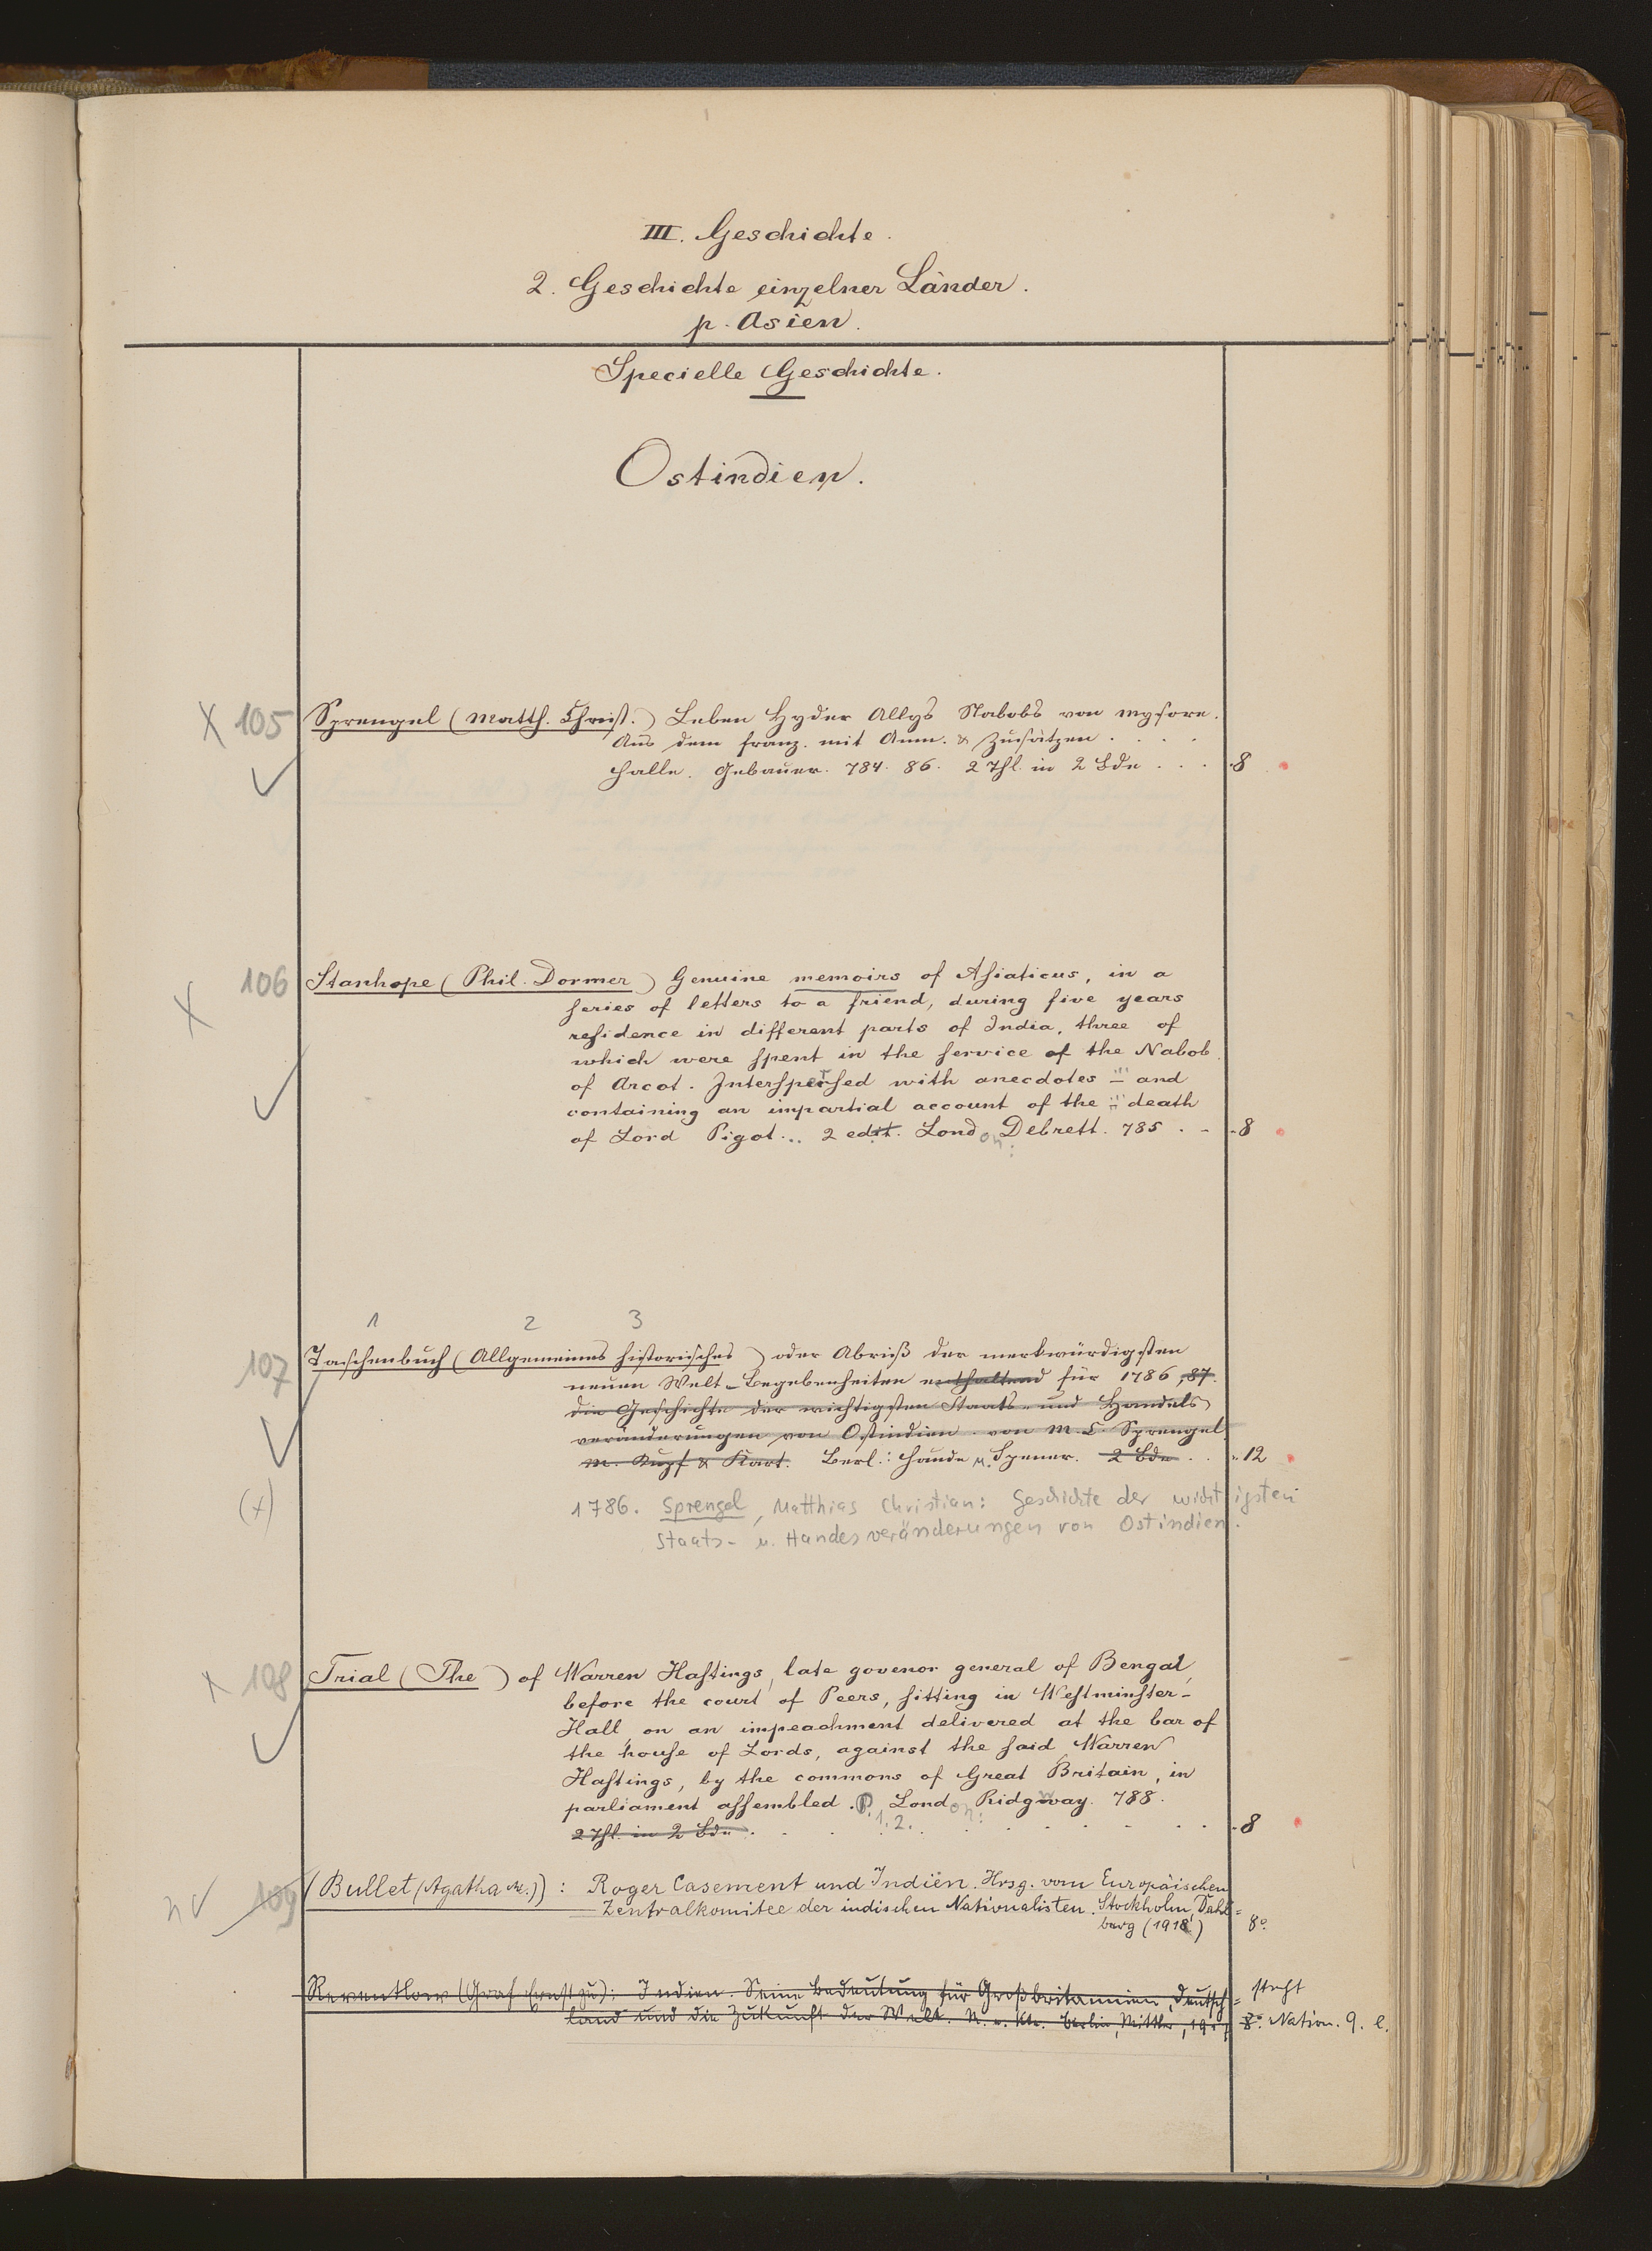 III. Geschichte.
2. Geschichte einzelner Länder.
p. Asien.
Specielle Geschichte.
Ostindien.
X 105 Sprengel (Matth. Christ.) Leben Hyder Allys Nabobs von Mysore.
Aus dem franz. mit Anm. & Zusätzen . . . .
Halle. Gebauer. 784. 86. 2 Thl. in 2 Bde . . . 8
X 106 Stanhope (Phil. Dormer) Genuine memoirs of Asiaticus, in a
series of letters to a friend, during five years
residence in different parts of India, three of
which were spent in the service of the Nabob
of Arcot. Interspersed with anecdotes ... and
containing an impartial account of the ... death
of Lord Pigot... 2 edit. London: Debrett. 785 . . 8
1 2 3
107 Taschenbuch (Allgemeines historisches) oder Abriß der merkwürdigsten
neuen Welt-Begebenheiten enthaltend für 1786, 87.
die Geschichte der wichtigsten Staats- und Handels
veränderungen von Ostindien von M. C. Sprengel
m. Kupf & Kart. Berl.: Haude u. Spener. 2 Bde . . 12
(x) 1786. Sprengel, Matthias Christian: Geschichte der wichtigsten
Staats- u. Handesveränderungen von Ostindien.
x 108 Trial (The) of Warren Hastings, late govenor general of Bengal,
before the court of Peers, sitting in Westminster-
Hall, on an impeachment delivered at the bar of
the house of Lords, against the said Warren
Hastings, by the commons of Great Britain, in
parliament assembled. P. 1. 2. London: Ridgway. 788.
2 Thl. in 2 Bde . . . 8
109 (Bullet (Agatha M.)): Roger Casement und Indien. Hrsg. vom Europäischen
Zentralkomitee der indischen Nationalisten. Stockholm, Dahl=
berg (1918) 8°
Reventlow (Graf Ernst zu): Indien. Seine Bedeutung für Großbritannien, Deutsch= steht
land und die Zukunft der Welt. Berlin, Mittler, 8° Nation. 9. l.